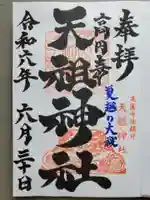 奉拝
高円寺
天祖神社
夏越の大祓
天祖神社
令和六年
六月三十日